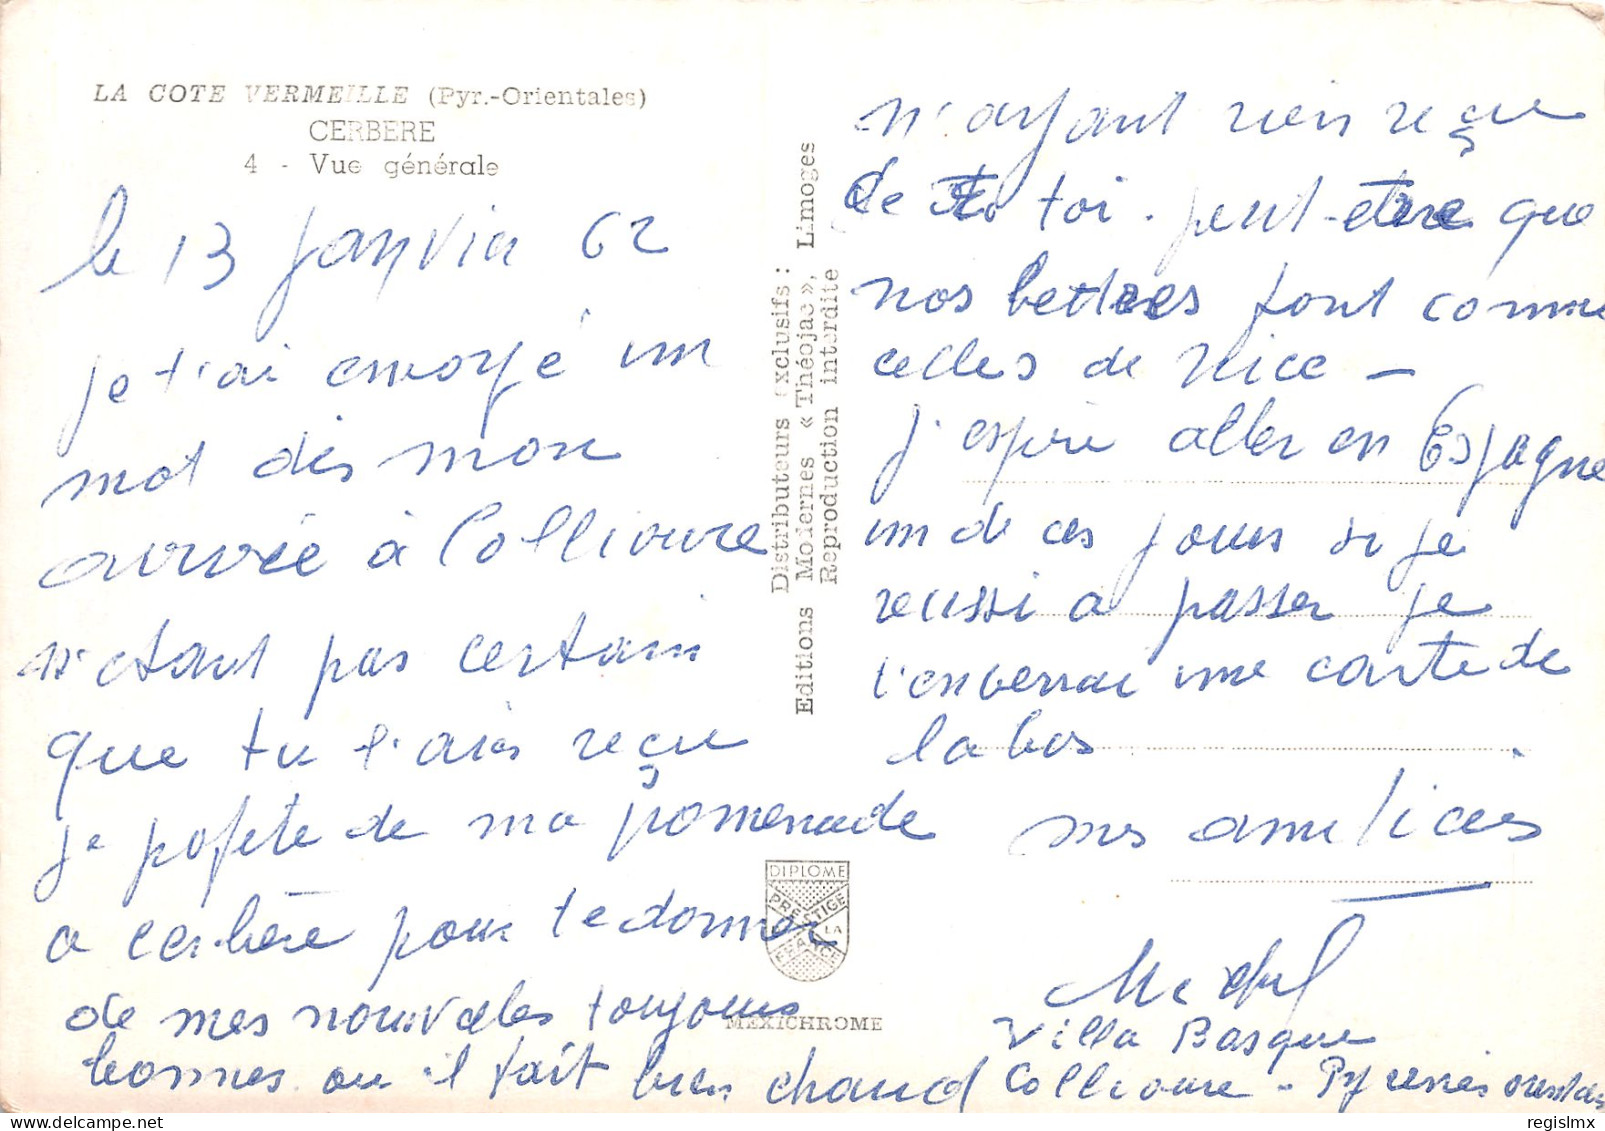 LA COTE VERMEILLE (Pyr.-Orientales)
CERBERE
4 - Vue générale
le 13 Janvier 62
je t'ai envoyé un
mot dès mon
arrivée à Collioure
n'étant pas certain
que tu l'aies reçu
je profite de ma promenade
a cerbère pour te donner
de mes nouvelles toujours
bonnes ou il fait bien chaud
Distributeurs exclusifs:
Editions Modernes « Théojac », Limoges
Reproduction interdite
DIPLOME
PRESTIGE
DE LA
FRANCE
MEXICHROME
n'ayant rien reçu
de toi. peut-être que
nos lettres font comme
celles de Nice -
j'espère aller en Espagne
un de ces jours si je
reussi a passer je
t'enverrai une carte de
la bas.
mes amitiées
Michel
Villa Basque
Collioure - Pyrenées orientales
regislmx